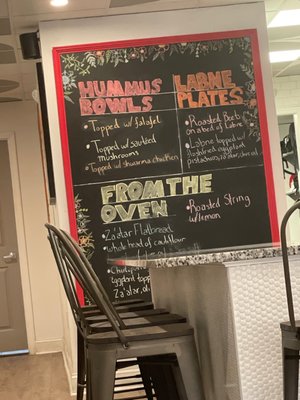 HUMMUS
BOWLS
Topped w/ falafel
Topped w/ sautéed
mushrooms
Topped w/ shawarma chicken
LABNE
PLATES
Roasted Beets
on a bed of Labne
Labne topped w/
pistachios, za'atar, drizzle
FROM THE
OVEN
Za'atar Flatbread
whole head of cauliflower
eggplant topped
Za'atar,
Roasted String
w/lemon